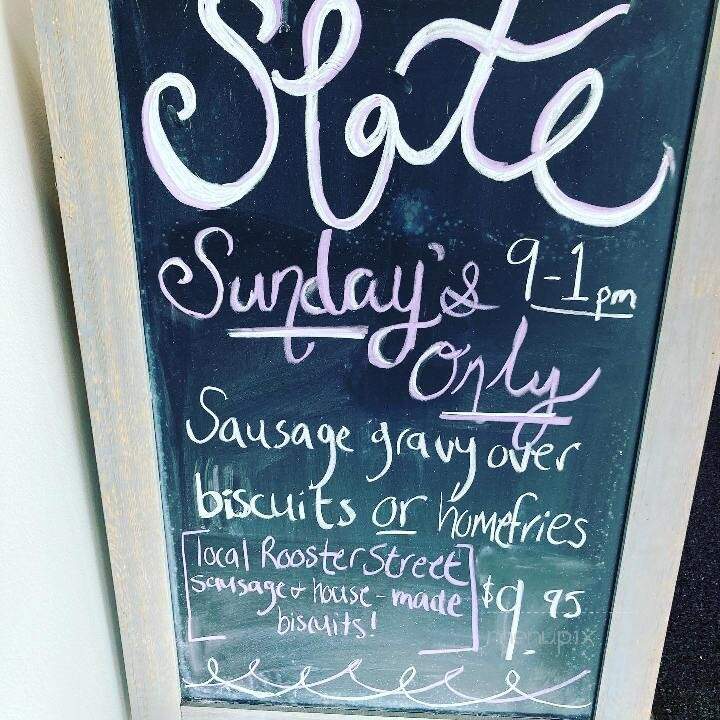 Slate
Sunday's 9-1pm
Only
Sausage gravy over
biscuits or homefries
local Rooster Street
sausage + house-made
biscuits!
$9.95
menupix